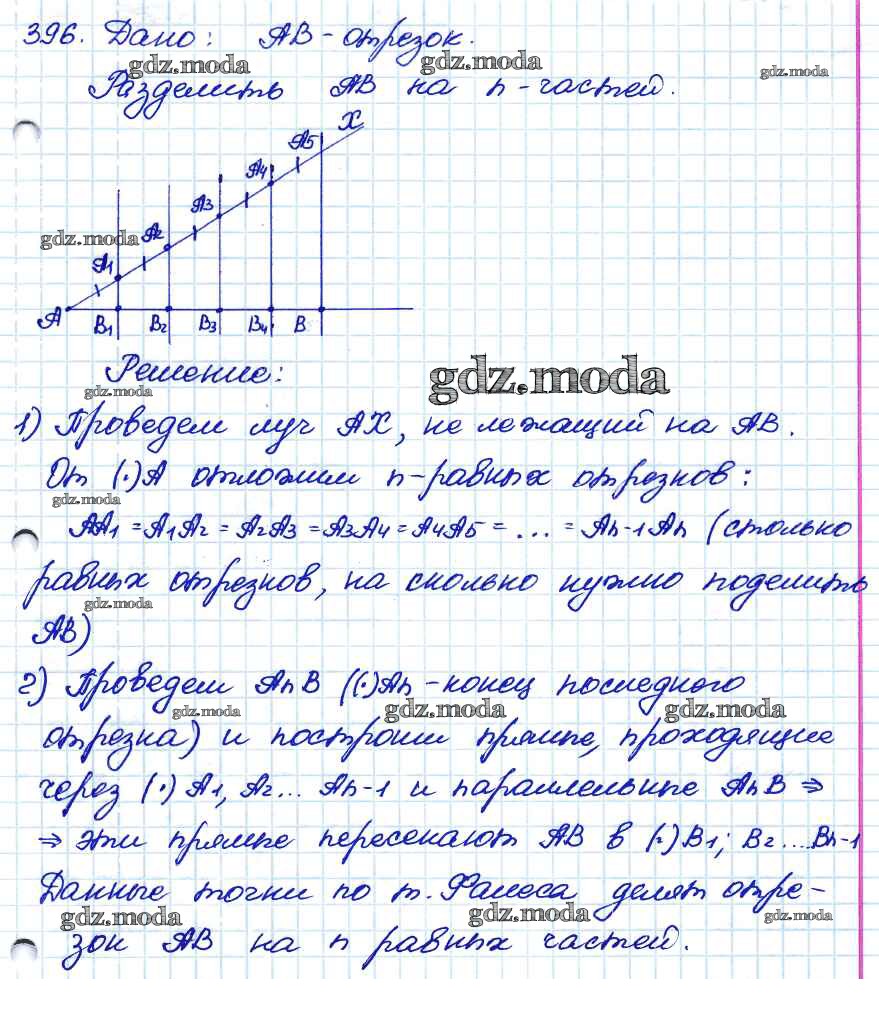 396. Дано: AB - отрезок.
gdz.moda gdz.moda gdz.moda
Разделить AB на n - частей.
X
A5
A4
A3
A2
gdz.moda
A1
A B1 B2 B3 B4 B
Решение:
gdz.moda gdz.moda
1) Проведем луч AX, не лежащий на AB.
От (·)A отложим n-равных отрезков:
gdz.moda
AA1 = A1A2 = A2A3 = A3A4 = A4A5 = ... = An-1An (столько
равных отрезков, на сколько нужно поделить
gdz.moda
AB)
2) Проведем AnB ((·)An - конец последнего
gdz.moda gdz.moda gdz.moda
отрезка) и построим прямые, проходящие
через (·) A1, A2... An-1 и параллельные AnB ⇒
⇒ эти прямые пересекают AB в (·) B1; B2 ... Bn-1
Данные точки по т. Фалеса делят отре-
gdz.moda gdz.moda gdz.moda
зок AB на n равных частей.